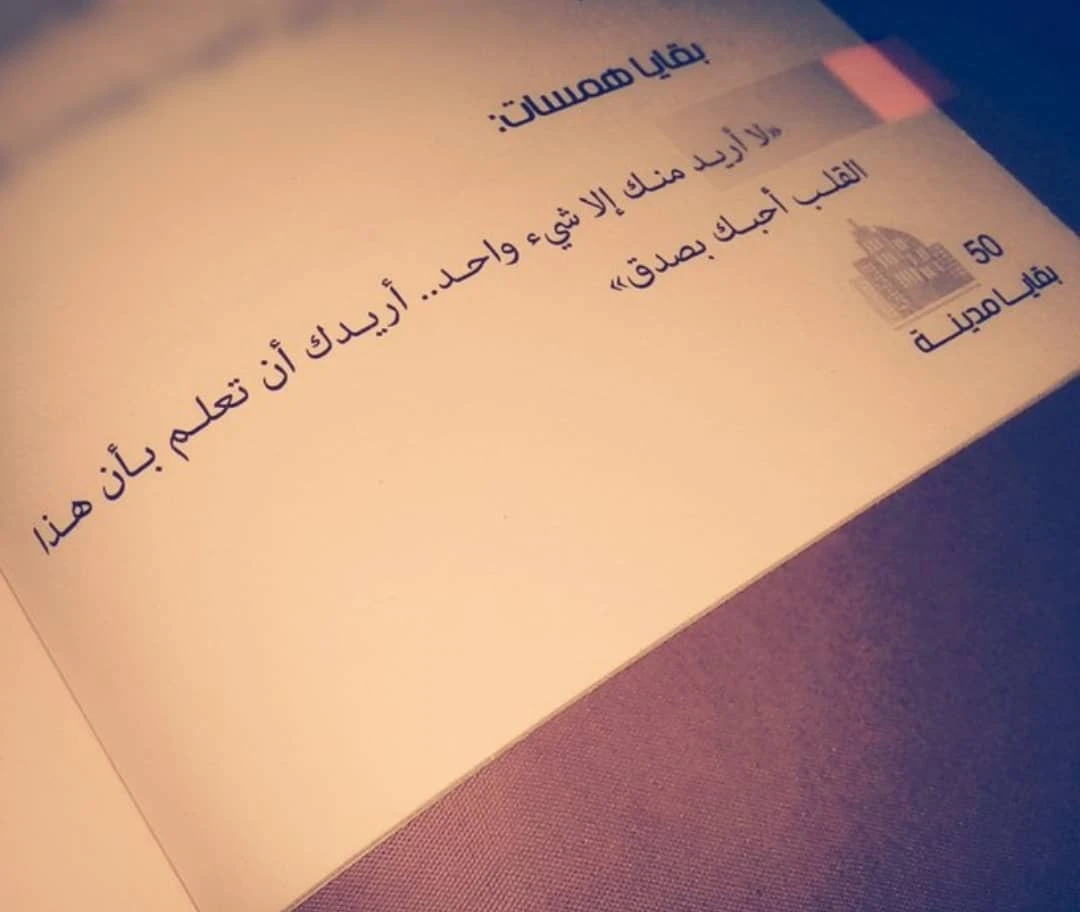 بقايا همسات:
«لا أريد منك إلا شيء واحد.. أريدك أن تعلم بأن هذا
القلب أحبك بصدق»
50
بقايا مدينة